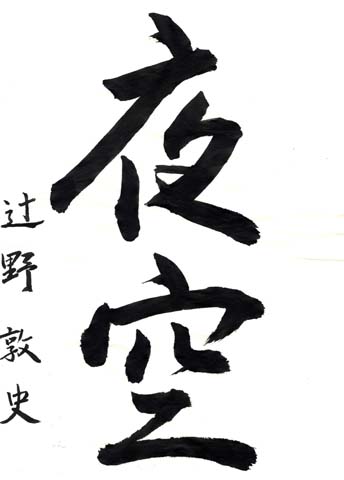 夜空
辻野敦史